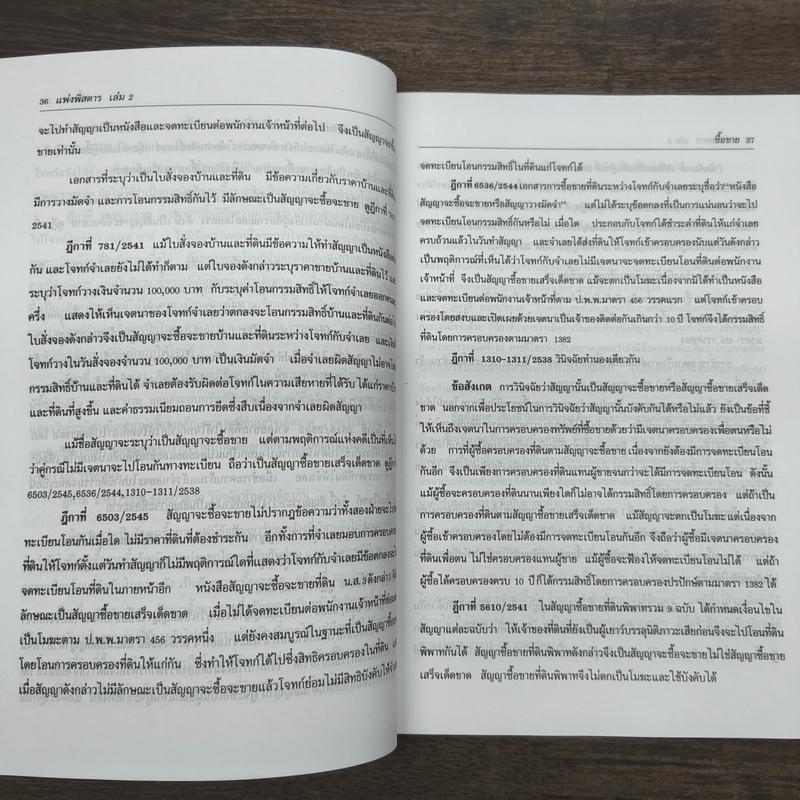 36 แพ่งพิสดาร เล่ม 2
จะไปทำสัญญาเป็นหนังสือและจดทะเบียนต่อพนักงานเจ้าหน้าที่ต่อไป จึงเป็นสัญญาจะซื้อ
ขายเท่านั้น
เอกสารที่ระบุว่าเป็นใบสั่งจองบ้านและที่ดิน มีข้อความเกี่ยวกับราคาบ้านและที่ดิน
มีการวางมัดจำ และการโอนกรรมสิทธิ์กันไว้ มีลักษณะเป็นสัญญาจะซื้อจะขาย ดูฎีกาที่
2541
ฎีกาที่ 781/2541 แม้ใบสั่งจองบ้านและที่ดินมีข้อความให้ทำสัญญาเป็นหนังสือ
กัน และโจทก์จำเลยยังไม่ได้ทำก็ตาม แต่ใบจองดังกล่าวระบุราคาขายบ้านและที่ดินไว้
ระบุว่าโจทก์วางเงินจำนวน 100,000 บาท กับระบุค่าโอนกรรมสิทธิ์ให้โจทก์จำเลยออกคนละ
ครึ่ง แสดงให้เห็นเจตนาของโจทก์จำเลยว่าตกลงจะโอนกรรมสิทธิ์บ้านและที่ดินกันต่อไป
ใบสั่งจองดังกล่าวจึงเป็นสัญญาจะซื้อจะขายบ้านและที่ดินระหว่างโจทก์กับจำเลย
โจทก์วางในวันสั่งจองจำนวน 100,000 บาท เป็นเงินมัดจำ เมื่อจำเลยผิดสัญญาไม่อาจโอน
กรรมสิทธิ์บ้านและที่ดินได้ จำเลยต้องรับผิดต่อโจทก์ในความเสียหายที่ได้รับ ได้แก่ราคาบ้าน
และที่ดินที่สูงขึ้น และค่าธรรมเนียมถอนการยึดซึ่งสืบเนื่องจากจำเลยผิดสัญญา
แม้ชื่อสัญญาจะระบุว่าเป็นสัญญาจะซื้อขาย แต่ตามพฤติการณ์แห่งคดีเป็นที่เห็น
ว่าคู่กรณีไม่มีเจตนาจะไปโอนกันทางทะเบียน ถือว่าเป็นสัญญาซื้อขายเสร็จเด็ดขาด ดูฎีกา
6503/2545,6536/2544,1310-1311/2538
ฎีกาที่ 6503/2545 สัญญาจะซื้อขายไม่ปรากฏข้อความว่าทั้งสองฝ่ายจะไป
ทะเบียนโอนกันเมื่อใด ไม่มีราคาที่ดินที่ต้องชำระกัน อีกทั้งการที่จำเลยมอบการครอบครอง
ที่ดินให้โจทก์ตั้งแต่วันทำสัญญาก็ไม่มีพฤติการณ์ใดที่แสดงว่าโจทก์กับจำเลยมีข้อตกลงจะ
จดทะเบียนโอนที่ดินในภายหน้าอีก หนังสือสัญญาจะซื้อจะขายที่ดิน น.ส.3 ดังกล่าว
ลักษณะเป็นสัญญาซื้อขายเสร็จเด็ดขาด เมื่อไม่ได้จดทะเบียนต่อพนักงานเจ้าหน้าที่ย่อม
เป็นโมฆะตาม ป.พ.พ.มาตรา 456 วรรคหนึ่ง แต่ยังคงสมบูรณ์ในฐานะที่เป็นสัญญาซื้อขาย
โดยโอนการครอบครองที่ดินให้แก่กัน ซึ่งทำให้โจทก์ได้ไปซึ่งสิทธิครอบครองในที่ดิน
เมื่อสัญญาดังกล่าวไม่มีลักษณะเป็นสัญญาจะซื้อจะขายแล้วโจทก์ย่อมไม่มีสิทธิบังคับให้
ซื้อขาย 37
จดทะเบียนโอนกรรมสิทธิ์ในที่ดินแก่โจทก์ได้
ฎีกาที่ 6536/2544 เอกสารการซื้อขายที่ดินระหว่างโจทก์กับจำเลยระบุชื่อว่า“หนังสือ
สัญญาจะซื้อจะขายหรือสัญญาวางมัดจำ” แต่ไม่ได้ระบุข้อตกลงที่เป็นการแน่นอนว่าจะไป
จดทะเบียนโอนกรรมสิทธิ์กันหรือไม่ เมื่อใด ประกอบกับโจทก์ได้ชำระค่าที่ดินให้แก่จำเลย
ครบถ้วนแล้วในวันทำสัญญา และจำเลยได้ส่งที่ดินให้โจทก์เข้าครอบครองนับแต่วันดังกล่าว
เป็นพฤติการณ์ที่เห็นได้ว่าโจทก์กับจำเลยไม่มีเจตนาจะจดทะเบียนโอนที่ดินต่อพนักงาน
เจ้าหน้าที่ จึงเป็นสัญญาซื้อขายเสร็จเด็ดขาด แม้จะตกเป็นโมฆะเนื่องจากมิได้ทำเป็นหนังสือ
และจดทะเบียนต่อพนักงานเจ้าหน้าที่ตาม ป.พ.พ.มาตรา 456 วรรคแรก แต่โจทก์เข้าครอบ
ครองโดยสงบและเปิดเผยด้วยเจตนาเป็นเจ้าของติดต่อกันเกินกว่า 10 ปี โจทก์จึงได้กรรมสิทธิ์
ที่ดินโดยการครอบครองตามมาตรา 1382
ฎีกาที่ 1310-1311/2538 วินิจฉัยทำนองเดียวกัน
ข้อสังเกต การวินิจฉัยว่าสัญญานั้นเป็นสัญญาจะซื้อขายหรือสัญญาซื้อขายเสร็จเด็ด
ขาด นอกจากเพื่อประโยชน์ในการวินิจฉัยว่าสัญญานั้นบังคับกันได้หรือไม่แล้ว ยังเป็นข้อที่ชี้
ให้เห็นถึงเจตนาในการครอบครองทรัพย์ที่ซื้อขายด้วยว่ามีเจตนาครอบครองเพื่อตนหรือไม่
ด้วย การที่ผู้ซื้อครอบครองที่ดินตามสัญญาจะซื้อขาย เนื่องจากยังต้องมีการจดทะเบียนโอน
กันอีก จึงเป็นเพียงการครอบครองที่ดินแทนผู้ขายจนกว่าจะได้มีการจดทะเบียนโอน ดังนั้น
แม้ผู้ซื้อจะครอบครองที่ดินนานเพียงใดก็ไม่อาจได้กรรมสิทธิ์โดยการครอบครอง แต่ถ้าเป็น
การครอบครองที่ดินตามสัญญาซื้อขายเสร็จเด็ดขาด แม้สัญญาจะตกเป็นโมฆะ แต่เนื่องจาก
ผู้ซื้อเข้าครอบครองโดยไม่ต้องมีการจดทะเบียนโอนกันอีก จึงถือว่าผู้ซื้อมีเจตนาครอบครอง
ที่ดินเพื่อตน ไม่ใช่ครอบครองแทนผู้ขาย แม้ผู้ซื้อจะฟ้องให้จดทะเบียนโอนไม่ได้ แต่ถ้า
ผู้ซื้อได้ครอบครองครบ 10 ปี ก็ได้กรรมสิทธิ์โดยการครอบครองปรปักษ์ตามมาตรา 1382 ได้
ฎีกาที่ 5610/2541 ในสัญญาซื้อขายที่ดินพิพาทรวม 9 ฉบับ ได้กำหนดเงื่อนไขใน
สัญญาแต่ละฉบับว่า ให้เจ้าของที่ดินที่ยังเป็นผู้เยาว์บรรลุนิติภาวะเสียก่อนจึงจะไปโอนที่ดิน
พิพาทกันได้ สัญญาซื้อขายที่ดินพิพาทดังกล่าวจึงเป็นสัญญาจะซื้อขายไม่ใช่สัญญาซื้อขาย
เสร็จเด็ดขาด สัญญาซื้อขายที่ดินพิพาทจึงไม่ตกเป็นโมฆะและใช้บังคับได้